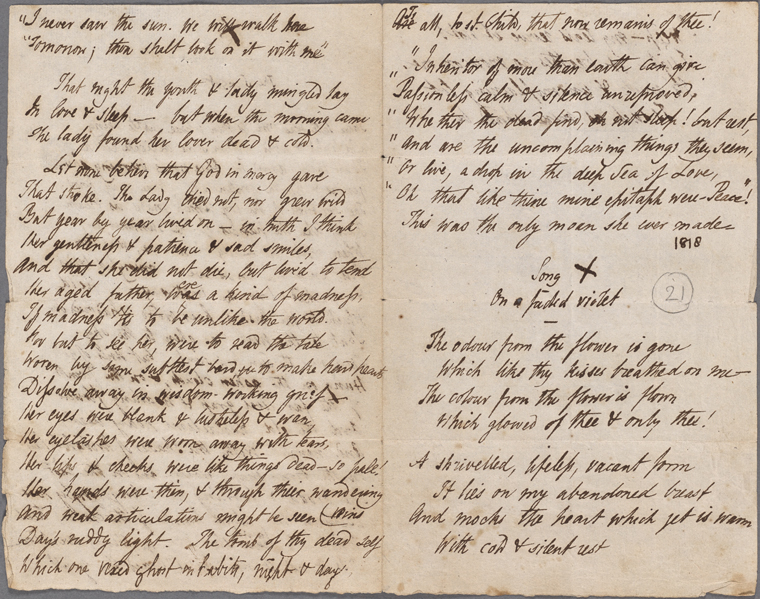 "I never saw the sun. We will walk here
"Tomorrow; thou shalt look on it with me"
That night the youth & lady mingled lay
In love & sleep — but when the morning came
The lady found her lover dead & cold.
Let none believe that God in mercy gave
That stroke. The Lady died not, nor grew wild
But year by year lived on — in truth I think
Her gentleness & patience & sad smiles,
And that she did not die, but lived to tend
Her aged father, was a kind of madness,
If madness 'tis to be unlike the world.
For but to see her, were to read the tale
Woven by some subtlest bard, to make hard hearts
Dissolve away in wisdom-working grief
Her eyes were blank & lustreless & wan
Her eyelashes were worn away with tears,
Her lips & cheeks, were like things dead — so pale!
Her hands were thin, & through their wandering
veins
And weak articulations might be seen
Day's ruddy light. The tomb of thy dead self
Which one vexed ghost inhabits, night & day.
Is all, lost Child, that now remains of thee!
" "Inheritor of more than earth can give
" Passionless calm & silence unreproved,
" Whether the dead find, oh not sleep! but rest,
" And are the uncomplaining things they seem,
" Or live, a drop in the deep Sea of Love,
" Oh that like thine mine epitaph were—Peace"!
This was the only moan she ever made—
1818
Song X
On a faded violet
21
The odour from the flower is gone
Which like thy kisses breathed on me—
The colour from the flower is flown
Which glowed of thee & only thee!
A shrivelled, lifeless, vacant form
It lies on my abandoned breast
And mocks the heart which yet is warm
With cold & silent rest